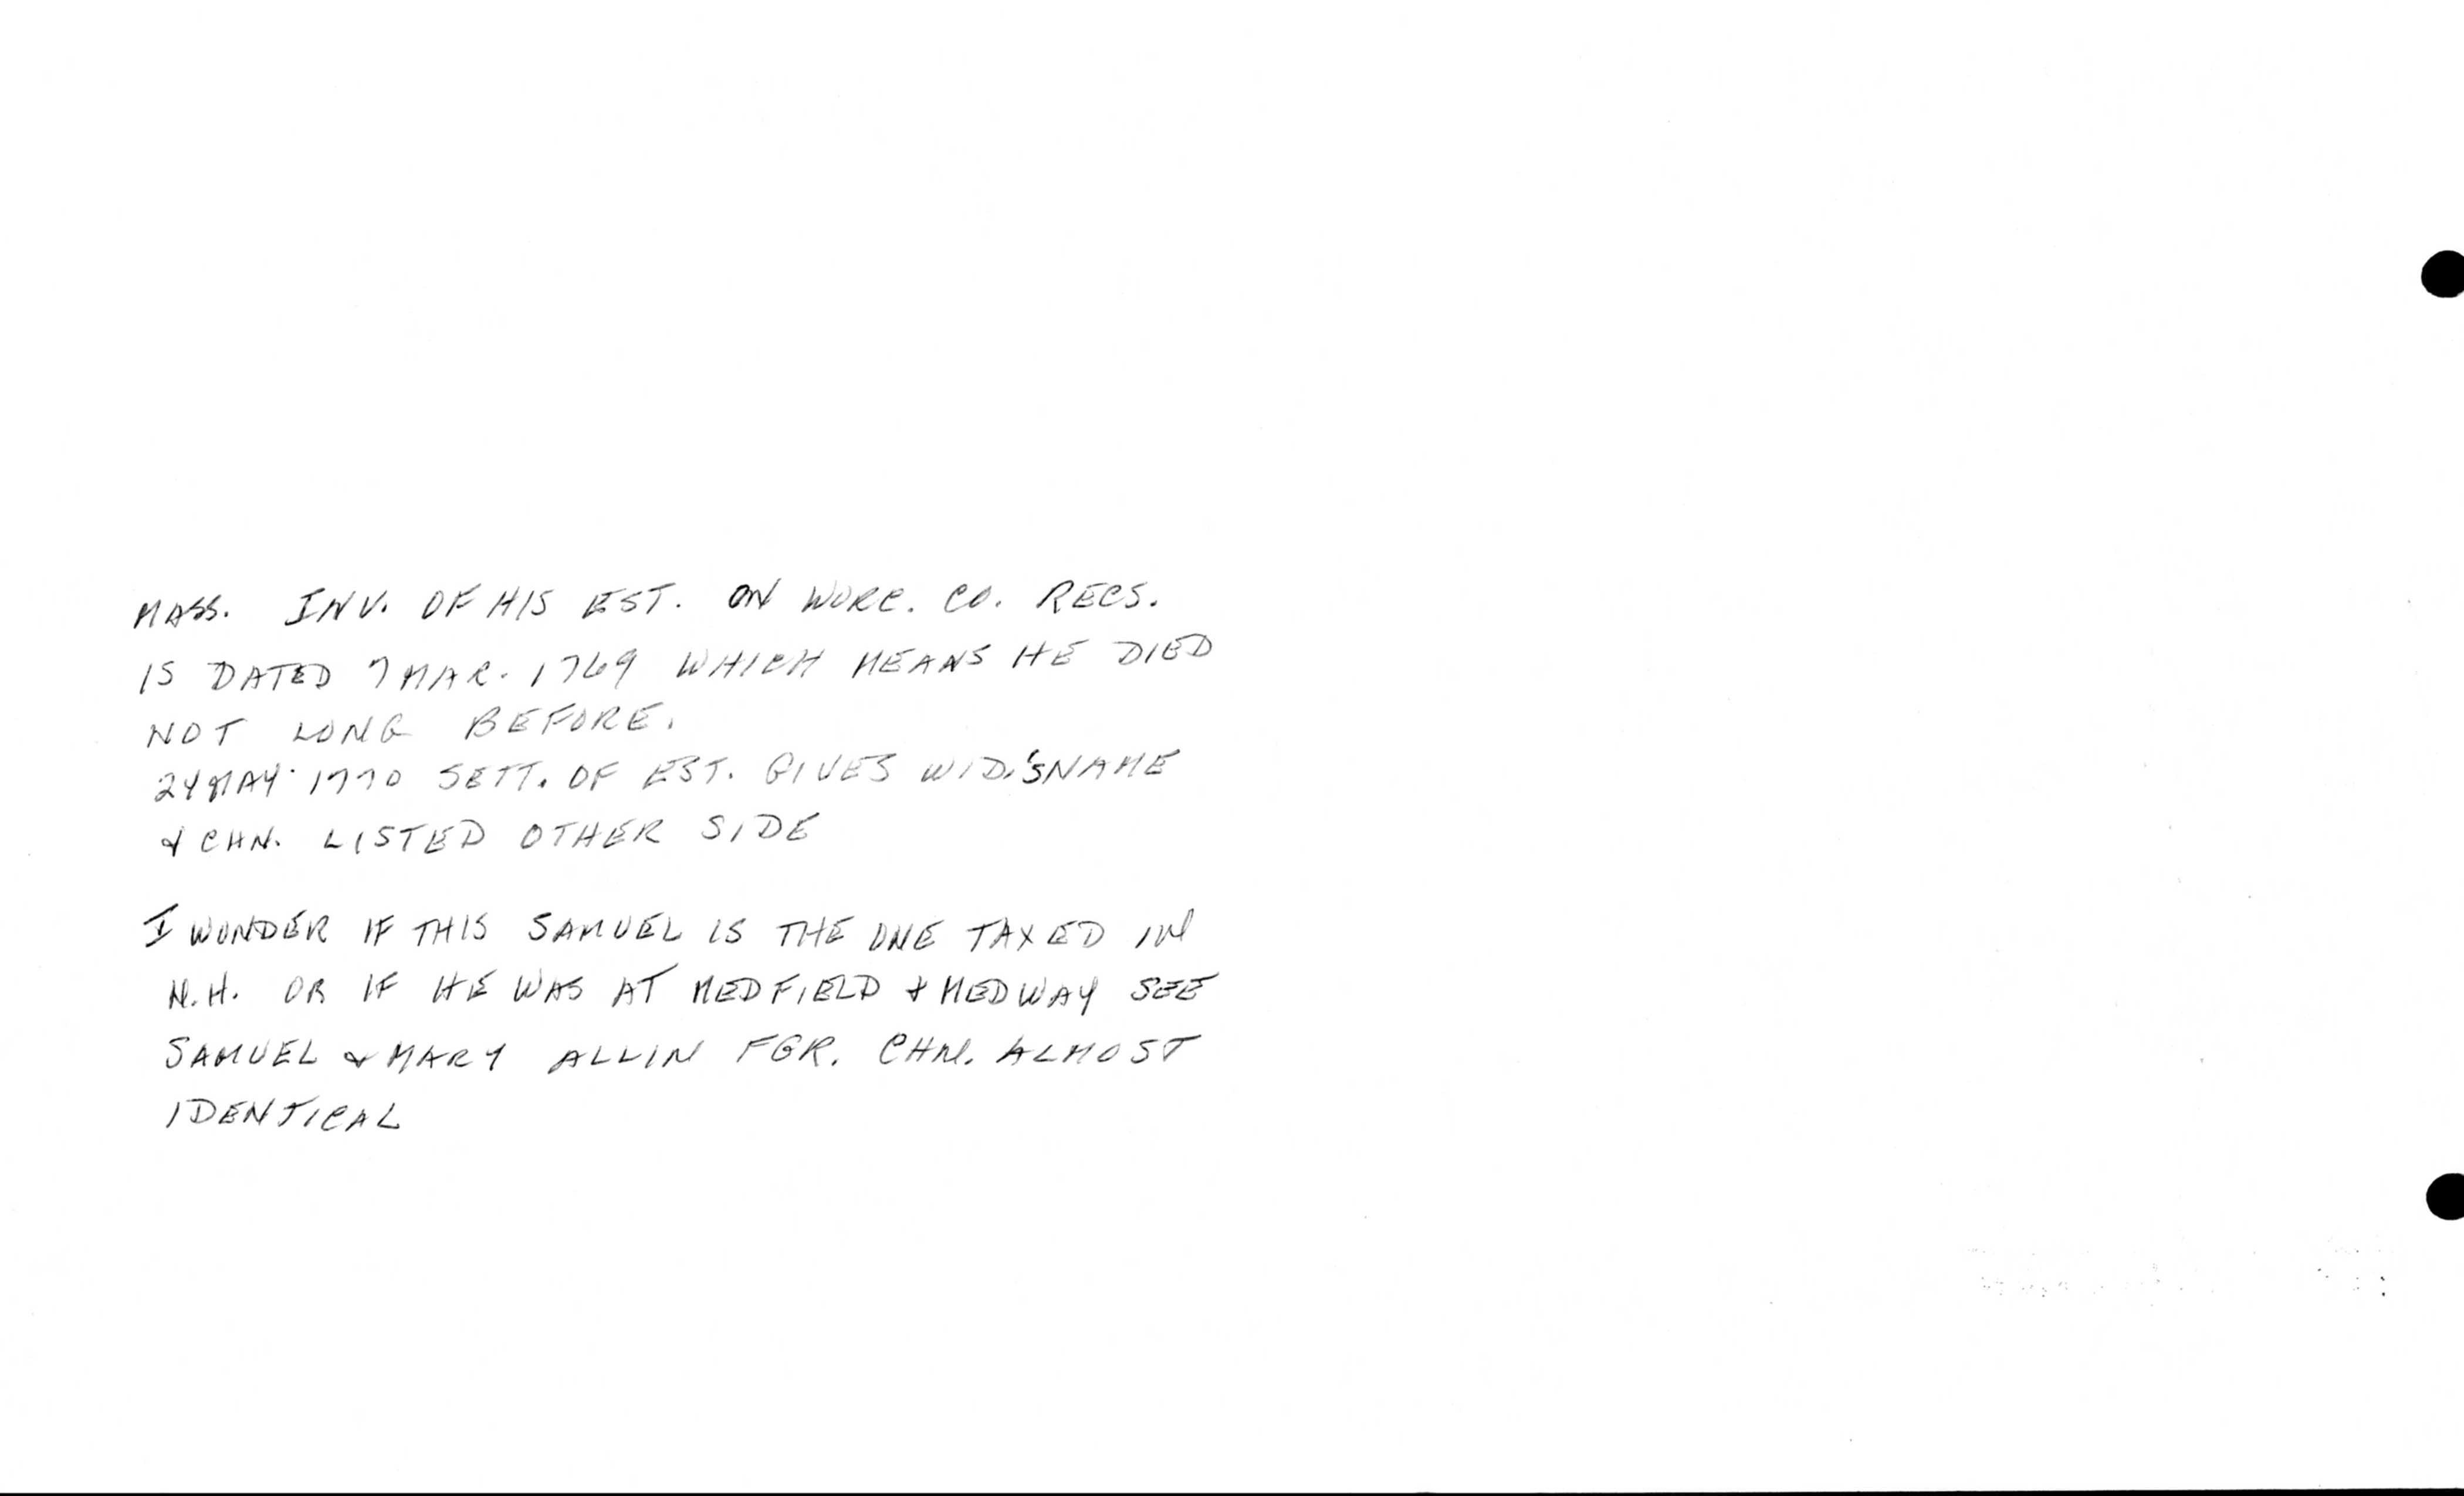 MASS. INV. OF HIS EST. ON WORC. CO. RECS.
IS DATED 7 MAR. 1769 WHICH MEANS HE DIED
NOT LONG BEFORE.
24 MAY 1770 SETT. OF EST. GIVES WID.'S NAME
& CHN. LISTED OTHER SIDE
I WONDER IF THIS SAMUEL IS THE ONE TAXED IN
N.H. OR IF HE WAS AT MEDFIELD & MEDWAY SEE
SAMUEL & MARY ALLIN FGR. CHN. ALMOST
IDENTICAL